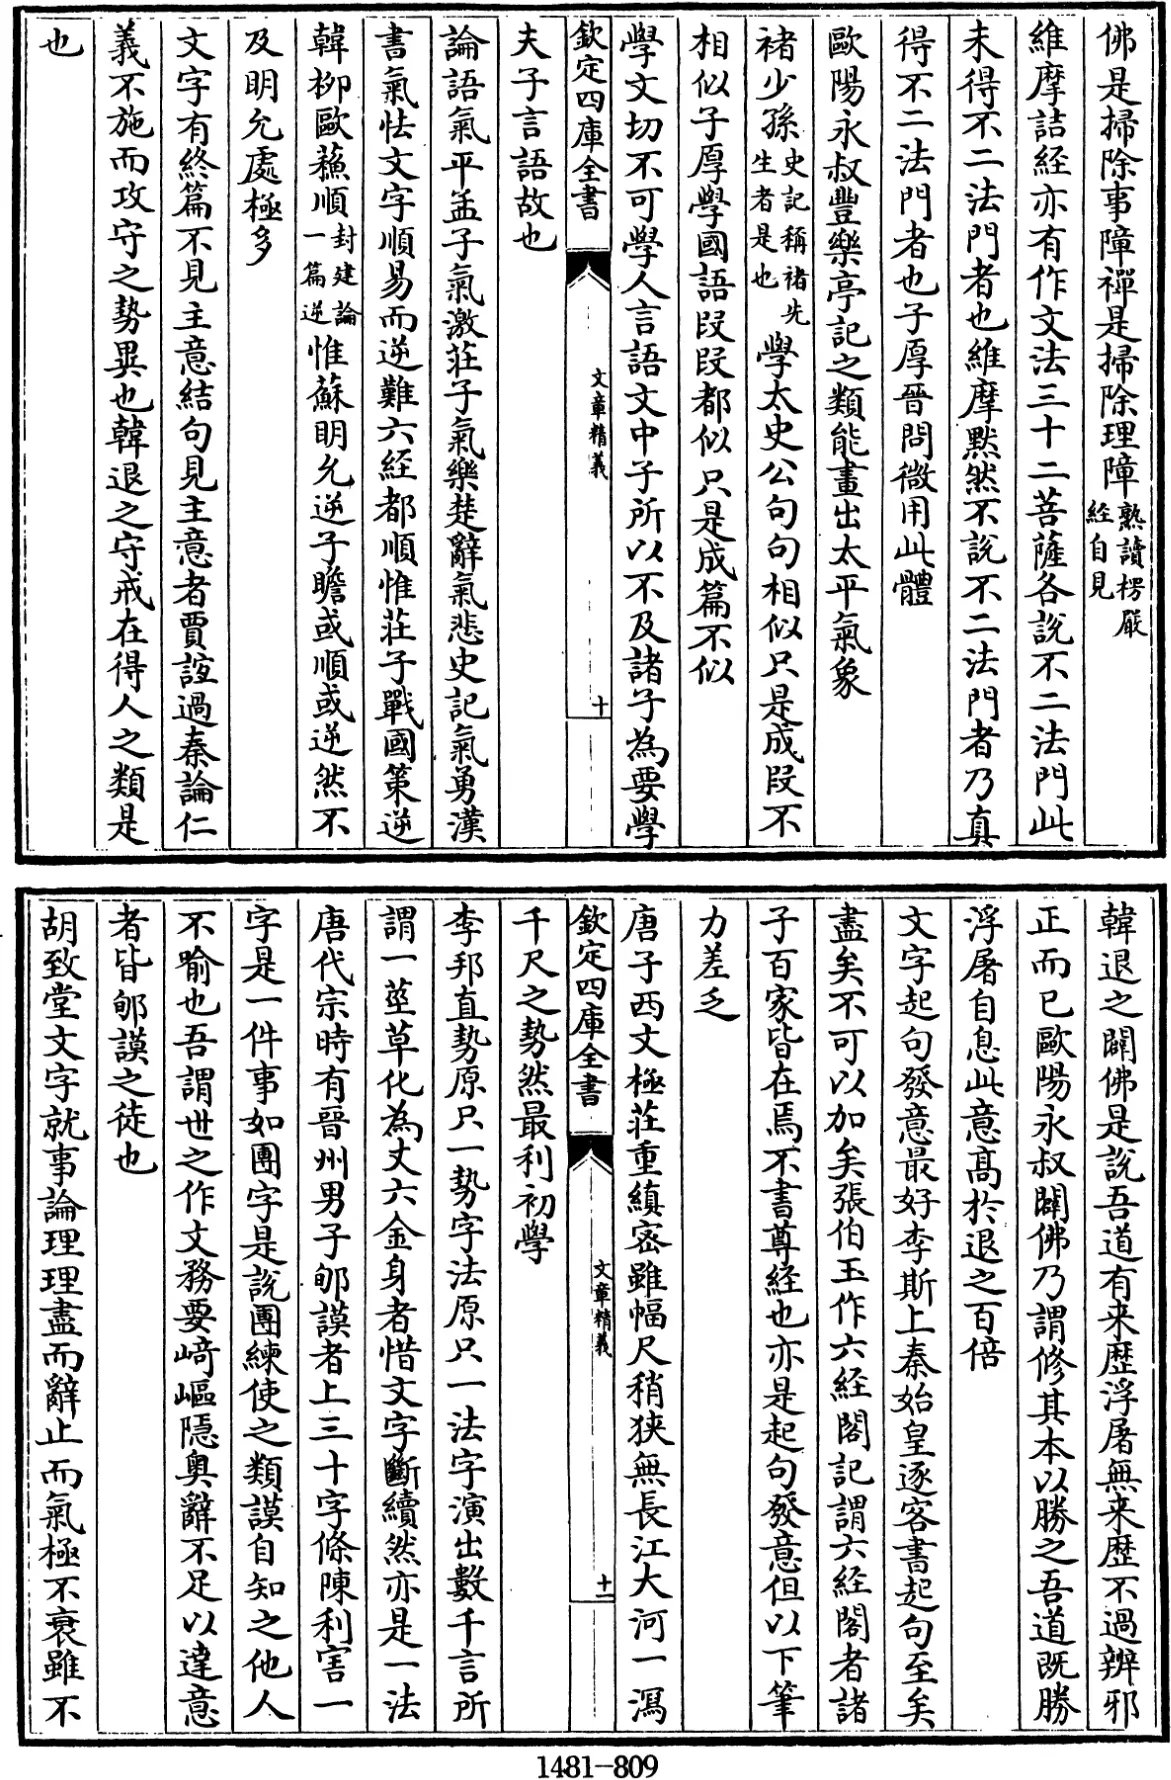 佛是掃除事障禪是掃除理障熟讀楞嚴經自見
維摩詰經亦有作文法三十二菩薩各說不二法門此
未得不二法門者也維摩黙然不說不二法門者乃真
得不二法門者也子厚晉問微用此體
歐陽永叔豐樂亭記之類能畫出太平氣象
褚少孫史記稱禇先生者是也學太史公句句相似只是成段不
相似子厚學國語段段都似只是成篇不似
學文切不可學人言語文中子所以不及諸子為要學
欽定四庫全書
文章精義
十
夫子言語故也
論語氣平孟子氣激莊子氣樂楚辭氣悲史記氣勇漢
書氣怯文字順易而逆難六經都順惟莊子戰國策逆
韓柳歐蘓順封建論一篇逆惟蘇明允逆子瞻或順或逆然不
及明允處極多
文字有終篇不見主意結句見主意者賈誼過秦論仁
義不施而攻守之勢異也韓退之守戒在得人之類是
也
韓退之闢佛是說吾道有来歴浮屠無来歴不過辨邪
正而已歐陽永叔闢佛乃謂修其本以勝之吾道既勝
浮屠自息此意髙於退之百倍
文字起句發意最好李斯上秦始皇逐客書起句至矣
盡矣不可以加矣張伯玉作六經閣記謂六經閣者諸
子百家皆在焉不書尊經也亦是起句發意但以下筆
力差乏
唐子西文極莊重縝密雖幅尺稍狹無長江大河一瀉
欽定四庫全書
文章精義
十一
千尺之勢然最利初學
李邦直勢原只一勢字法原只一法字演出數千言所
謂一莖草化為丈六金身者惜文字斷續然亦是一法
唐代宗時有晉州男子郇謨者上三十字條陳利害一
字是一件事如團字是說團練使之類謨自知之他人
不喻也吾謂世之作文務要崎嶇隱奥辭不足以達意
者皆郇謨之徒也
胡致堂文字就事論理理盡而辭止而氣極不衰雖不
1481-809